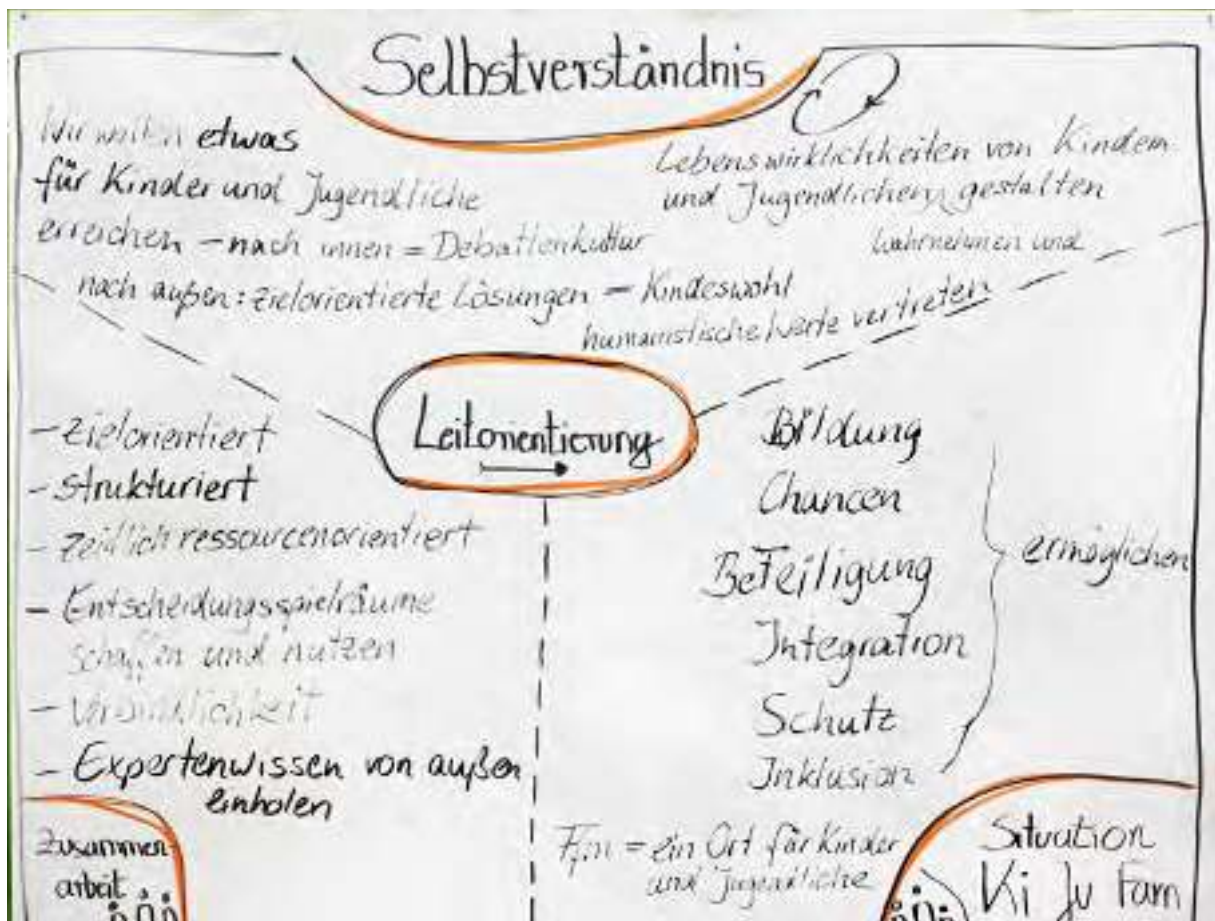 Selbstverständnis
Wir wollen etwas
für Kinder und Jugendliche
erreichen – nach innen = Debattenkultur
nach außen: zielorientierte Lösungen – Kindeswohl
humanistische Werte vertreten
Lebenswirklichkeiten von Kindern
und Jugendlichen gestalten
wahrnehmen und
Leitorientierung
- zielorientiert
- strukturiert
- zeitlich ressourcenorientiert
- Entscheidungsspielräume
schaffen und nutzen
- Verbindlichkeit
- Expertenwissen von außen
einholen
Bildung
Chancen
Beteiligung
Integration
Schutz
Inklusion
ermöglichen
= ein Ort für Kinder
und Jugendliche
Zusammen-
arbeit
Situation
Ki Ju Fam